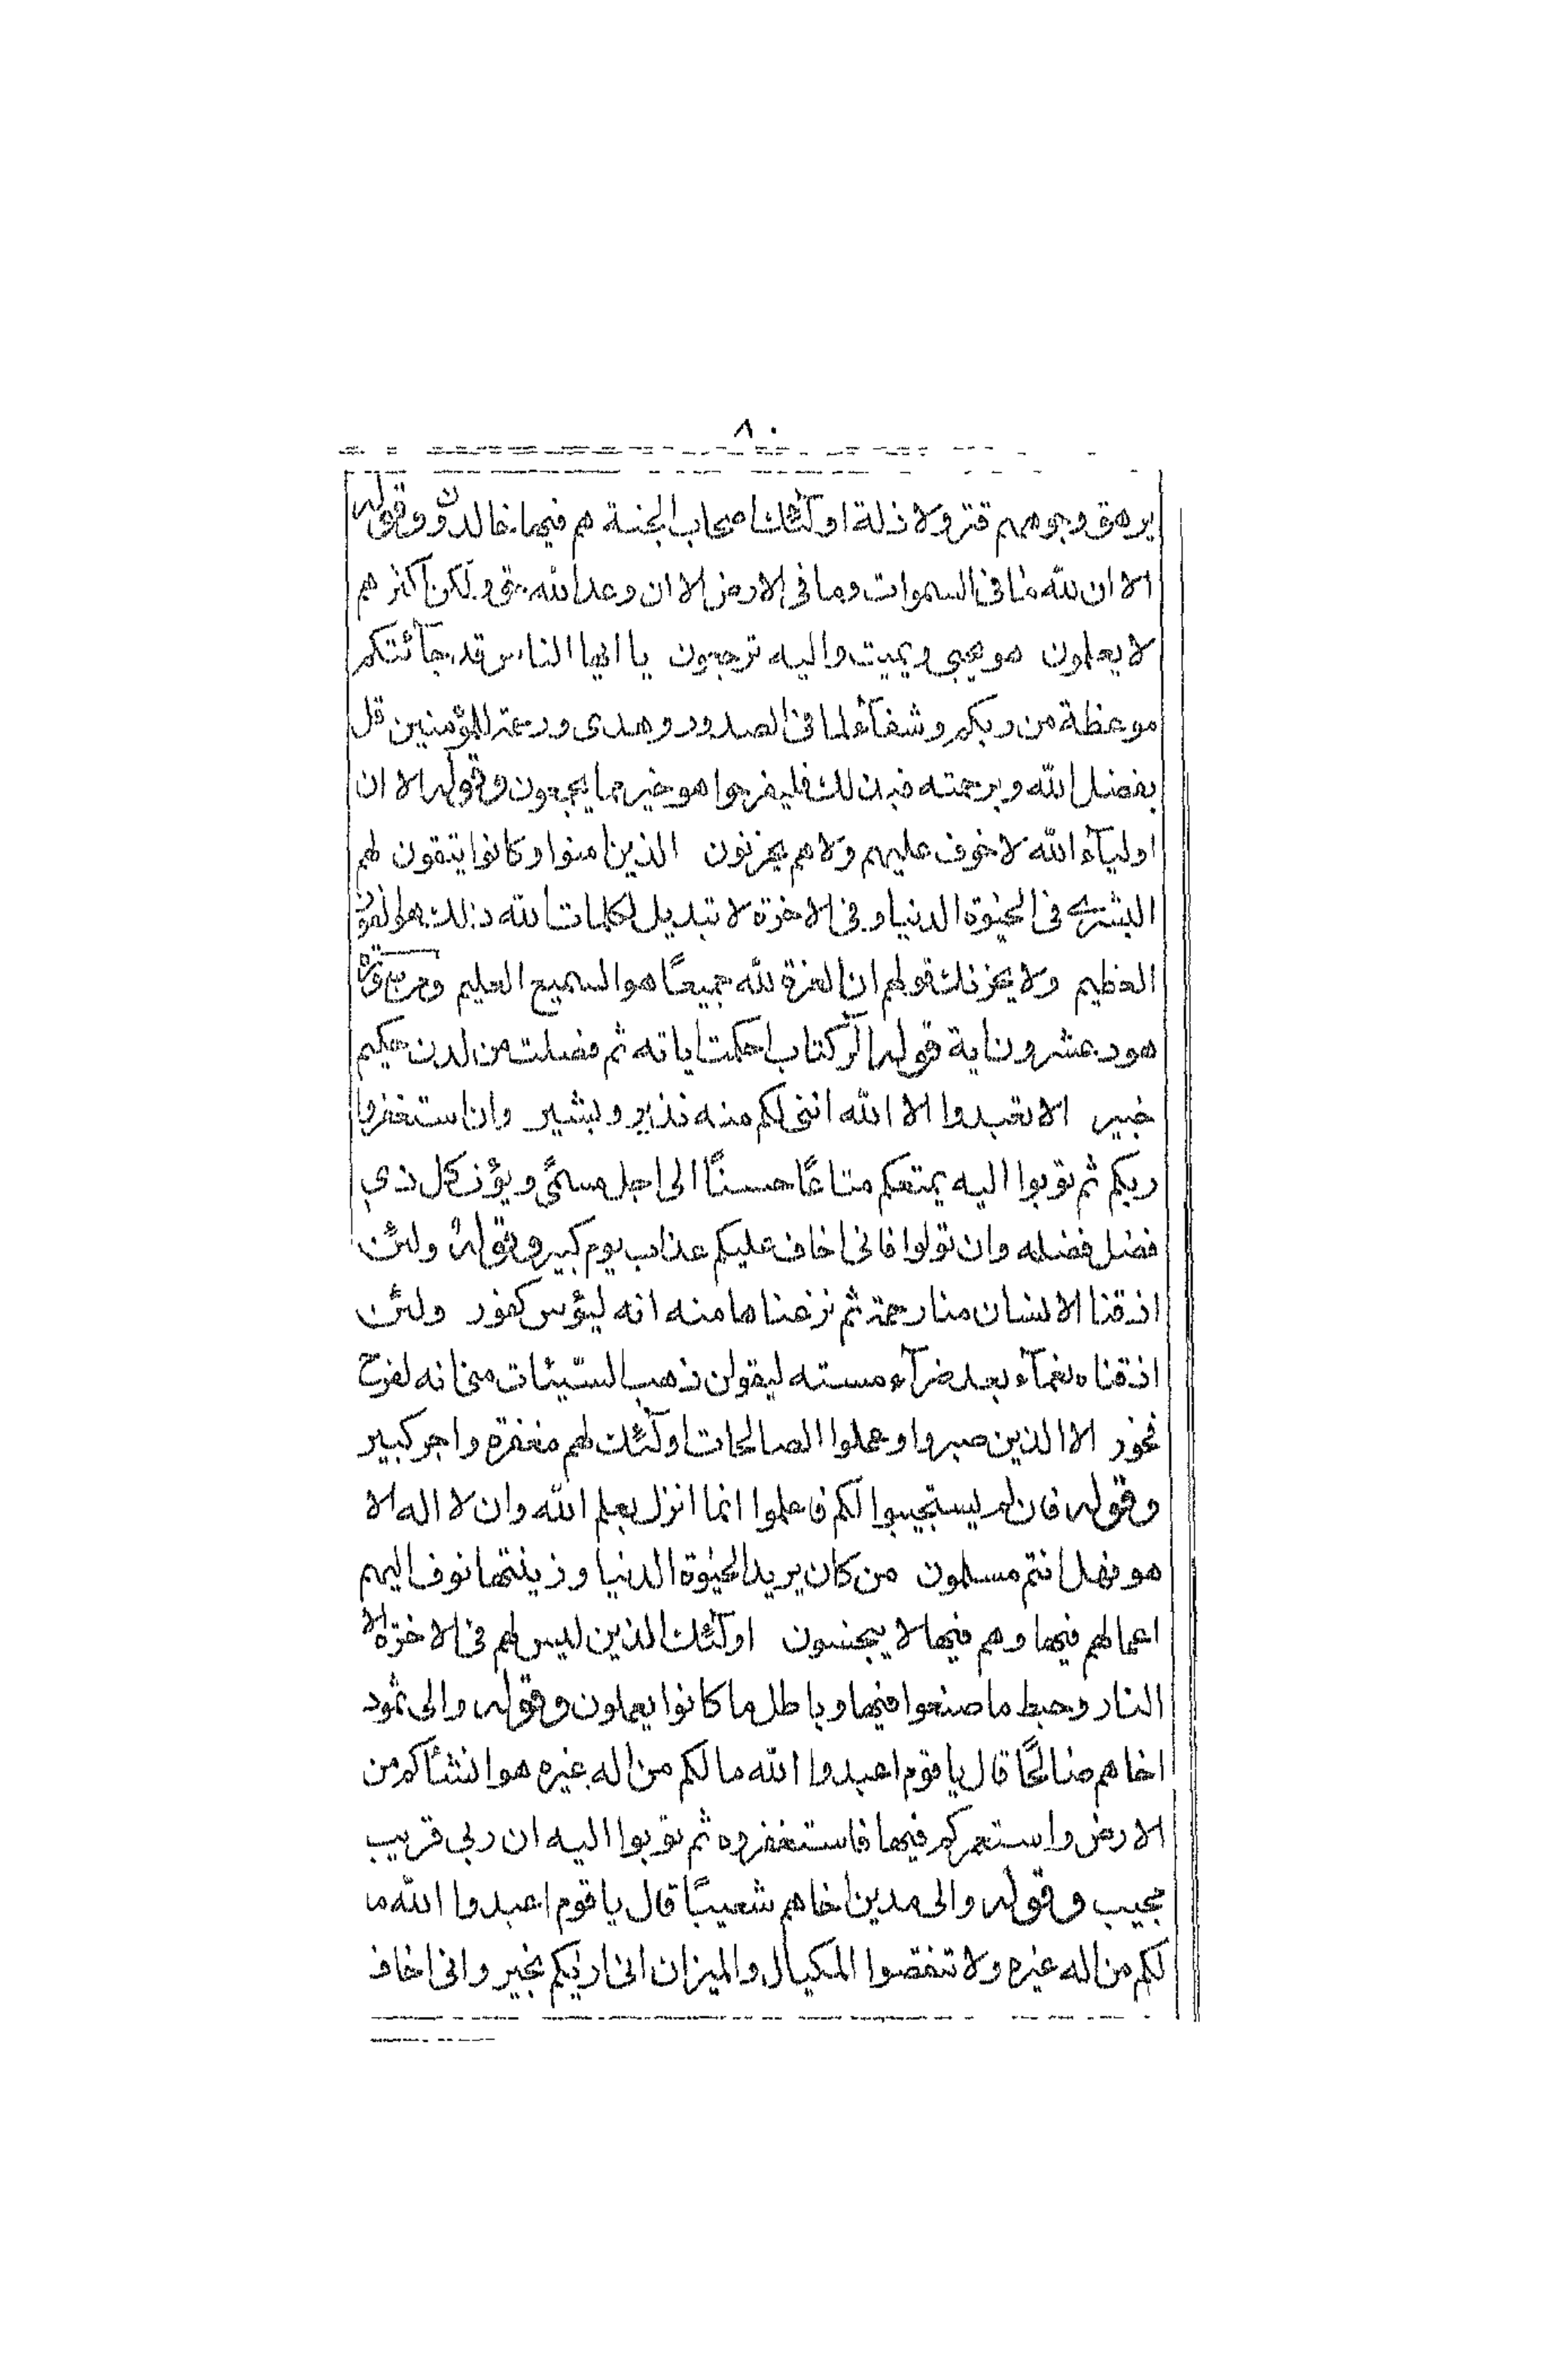 ٨٠
يرهق وجوههم قتر ولا ذلة اولٓئك اصحاب الجنة هم فيها خالدون وقوله
الا ان لله ما فى السموات وما فى الارض الا ان وعد الله حق ولكن اكثرهم
لا يعلمون هو يحيى ويميت واليه ترجعون يا ايها الناس قد جآئتكم
موعظة من ربكم وشفآء لما فى الصدور وهدى ورحمة للمؤمنين قل
بفضل الله وبرحمته فبذلك فليفرحوا هو خير مما يجمعون وقوله الا ان
اوليآء الله لا خوف عليهم ولا هم يحزنون الذين امنوا وكانوا يتقون لهم
البشرى فى الحيٰوة الدنيا وفى الاخرة لا تبديل لكلمات الله ذلك هو الفوز
العظيم ولا يحزنك قولهم ان العزة لله جميعًا هو السميع العليم ومن سورة
هود عشرون اية قوله الٓر كتاب احكمت اياته ثم فصلت من لدن حكيم
خبير الا تعبدوا الا الله اننى لكم منه نذير وبشير وان استغفروا
ربكم ثم توبوا اليه يمتعكم متاعًا حسنًا الى اجل مسمًى ويؤت كل ذي
فضل فضله وان تولوا فانى اخاف عليكم عذاب يوم كبير وقوله ولئن
اذقنا الانسان منا رحمة ثم نزعناها منه انه ليؤس كفور ولئن
اذقناه نعمآء بعد ضرآء مسته ليقولن ذهب السّيئات عنى انه لفرح
فخور الا الذين صبروا وعملوا الصالحات اولٓئك لهم مغفرة واجر كبير
وقوله فان لم يستجيبوا لكم فاعلموا انما انزل بعلم الله وان لا اله الا
هو فهل انتم مسلمون من كان يريد الحيٰوة الدنيا وزينتها نوف اليهم
اعمالهم فيها وهم فيها لا يبخسون اولٓئك الذين ليس لهم فى الاخرة الا
النار وحبط ما صنعوا فيها وباطل ما كانوا يعملون وقوله والى ثمود
اخاهم صالحًا قال يا قوم اعبدوا الله ما لكم من اله غيره هو انشأكم من
الارض واستعمركم فيها فاستغفروه ثم توبوا اليه ان ربى قريب
مجيب وقوله والى مدين اخاهم شعيبًا قال يا قوم اعبدوا الله ما
لكم من اله غيره ولا تنقصوا المكيال والميزان انى اريكم بخير وانى اخاف